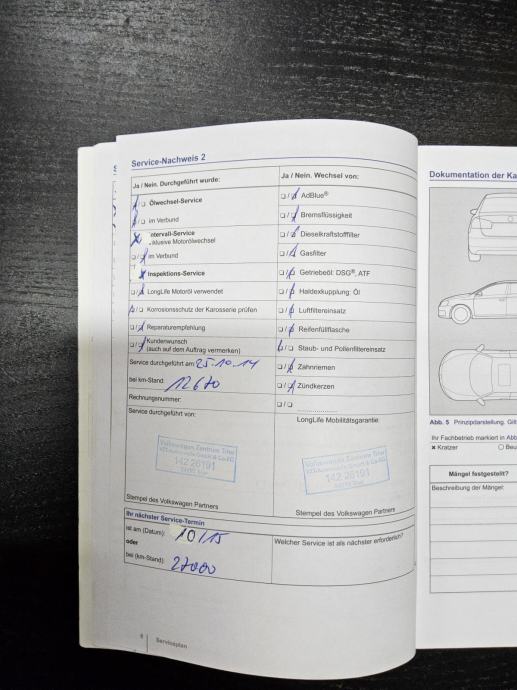 Service-Nachweis 2
Ja / Nein. Durchgeführt wurde:
Ölwechsel-Service
im Verbund
Intervall-Service
inklusive Motorölwechsel
im Verbund
Inspektions-Service
LongLife Motoröl verwendet
Korrosionsschutz der Karosserie prüfen
Reparaturempfehlung
Kundenwunsch
(auch auf dem Auftrag vermerken)
Service durchgeführt am: 25.10.14
bei km-Stand: 12670
Rechnungsnummer:
Service durchgeführt von:
Volkswagen Zentrum Trier
142 26191
Stempel des Volkswagen Partners
Ja / Nein. Wechsel von:
AdBlue®
Bremsflüssigkeit
Dieselkraftstofffilter
Gasfilter
Getriebeöl: DSG®, ATF
Haldexkupplung: Öl
Luftfiltereinsatz
Reifenfüllflasche
Staub- und Pollenfiltereinsatz
Zahnriemen
Zündkerzen
LongLife Mobilitätsgarantie:
Volkswagen Zentrum Trier
142 26191
Stempel des Volkswagen Partners
Ihr nächster Service-Termin
ist am (Datum): 10/15
oder
bei (km-Stand): 27000
Welcher Service ist als nächster erforderlich?
6 Serviceplan
Dokumentation der Ka
Abb. 5 Prinzipdarstellung. Gilt
Ihr Fachbetrieb markiert in Abb
x Kratzer
O Beu
Mängel festgestellt?
Beschreibung der Mängel: